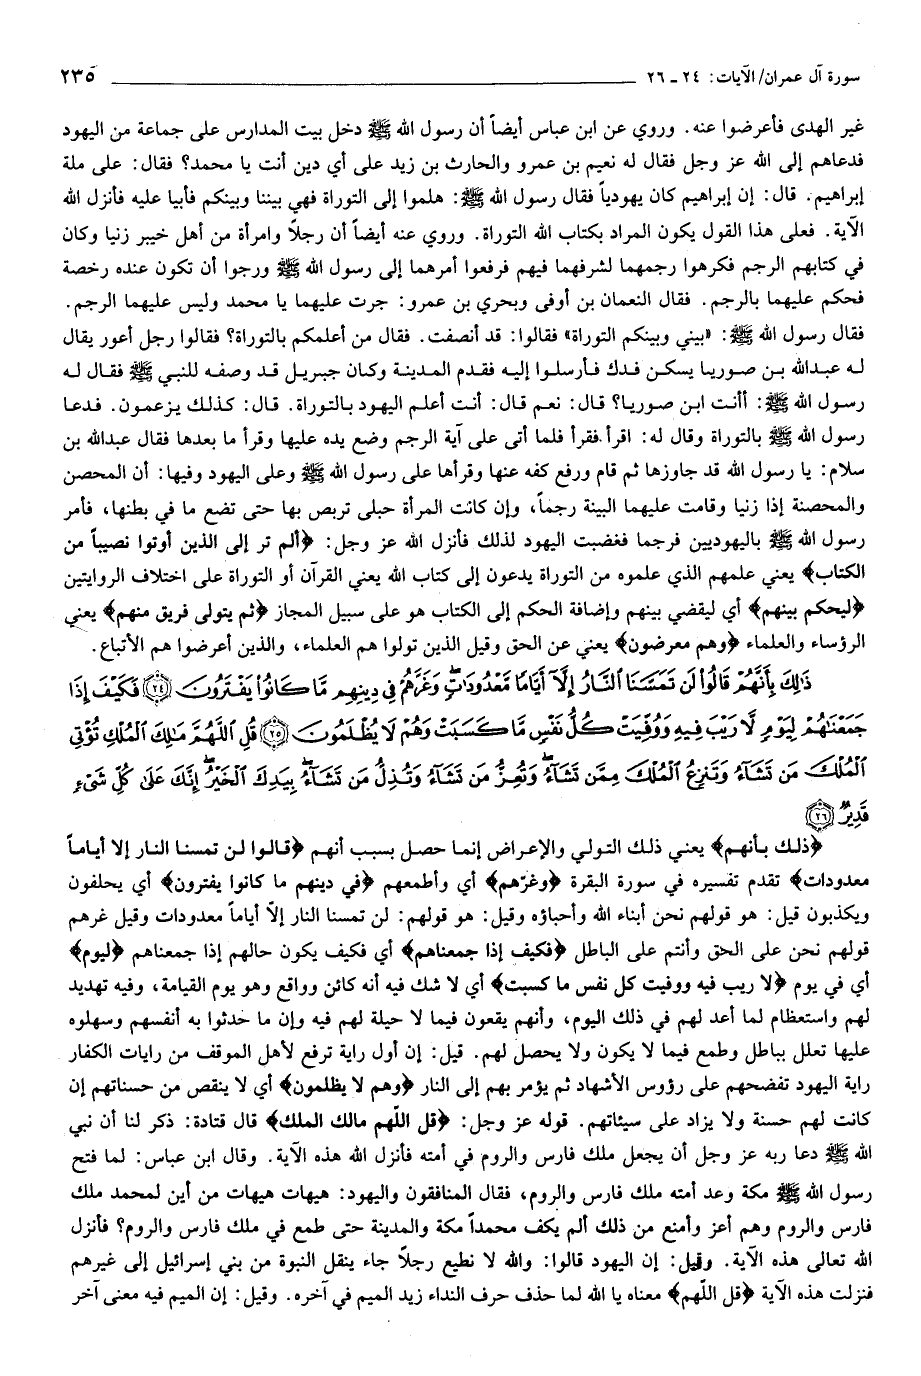 سورة آل عمران/ الآيات: ٢٤ ـ ٢٦ ٢٣٥
غير الهدى فأعرضوا عنه. وروي عن ابن عباس أيضاً أن رسول الله ﷺ دخل بيت المدارس على جماعة من اليهود
فدعاهم إلى الله عز وجل فقال له نعيم بن عمرو والحارث بن زيد على أي دين أنت يا محمد؟ فقال: على ملة
إبراهيم. قال: إن إبراهيم كان يهودياً فقال رسول الله ﷺ: هلموا إلى التوراة فهي بيننا وبينكم فأبيا عليه فأنزل الله
الآية. فعلى هذا القول يكون المراد بكتاب الله التوراة. وروي عنه أيضاً أن رجلاً وامرأة من أهل خيبر زنيا وكان
في كتابهم الرجم فكرهوا رجمهما لشرفهما فيهم فرفعوا أمرهما إلى رسول الله ﷺ ورجوا أن تكون عنده رخصة
فحكم عليهما بالرجم. فقال النعمان بن أوفى وبحري بن عمرو: جرت عليهما يا محمد وليس عليهما الرجم.
فقال رسول الله ﷺ: «بيني وبينكم التوراة» فقالوا: قد أنصفت. فقال من أعلمكم بالتوراة؟ فقالوا رجل أعور يقال
له عبدالله بن صوريا يسكن فدك فأرسلوا إليه فقدم المدينة وكان جبريل قد وصفه للنبي ﷺ فقال له
رسول الله ﷺ: أأنت ابن صوريا؟ قال: نعم قال: أنت أعلم اليهود بالتوراة. قال: كذلك يزعمون. فدعا
رسول الله ﷺ بالتوراة وقال له: اقرأ.فقرأ فلما أتى على آية الرجم وضع يده عليها وقرأ ما بعدها فقال عبدالله بن
سلام: يا رسول الله قد جاوزها ثم قام ورفع كفه عنها وقرأها على رسول الله ﷺ وعلى اليهود وفيها: أن المحصن
والمحصنة إذا زنيا وقامت عليهما البينة رجما، وإن كانت المرأة حبلى تربص بها حتى تضع ما في بطنها، فأمر
رسول الله ﷺ باليهوديين فرجما فغضبت اليهود لذلك فأنزل الله عز وجل: ﴿ألم تر إلى الذين أوتوا نصيباً من
الكتاب﴾ يعني علمهم الذي علموه من التوراة يدعون إلى كتاب الله يعني القرآن أو التوراة على اختلاف الروايتين
﴿ليحكم بينهم﴾ أي ليقضي بينهم وإضافة الحكم إلى الكتاب هو على سبيل المجاز ﴿ثم يتولى فريق منهم﴾ يعني
الرؤساء والعلماء ﴿وهم معرضون﴾ يعني عن الحق وقيل الذين تولوا هم العلماء، والذين أعرضوا هم الأتباع.
ذَٰلِكَ بِأَنَّهُمْ قَالُوا۟ لَن تَمَسَّنَا ٱلنَّارُ إِلَّآ أَيَّامًا مَّعْدُودَٰتٍ ۖ وَغَرَّهُمْ فِى دِينِهِم مَّا كَانُوا۟ يَفْتَرُونَ ﴿٢٤﴾ فَكَيْفَ إِذَا
جَمَعْنَٰهُمْ لِيَوْمٍ لَّا رَيْبَ فِيهِ وَوُفِّيَتْ كُلُّ نَفْسٍ مَّا كَسَبَتْ وَهُمْ لَا يُظْلَمُونَ ﴿٢٥﴾ قُلِ ٱللَّهُمَّ مَٰلِكَ ٱلْمُلْكِ تُؤْتِى
ٱلْمُلْكَ مَن تَشَآءُ وَتَنزِعُ ٱلْمُلْكَ مِمَّن تَشَآءُ وَتُعِزُّ مَن تَشَآءُ وَتُذِلُّ مَن تَشَآءُ ۖ بِيَدِكَ ٱلْخَيْرُ ۖ إِنَّكَ عَلَىٰ كُلِّ شَىْءٍ
قَدِيرٌ ﴿٢٦﴾
﴿ذلك بأنهم﴾ يعني ذلك التولي والإعراض إنما حصل بسبب أنهم ﴿قالوا لن تمسنا النار إلا أياماً
معدودات﴾ تقدم تفسيره في سورة البقرة ﴿وغرّهم﴾ أي وأطمعهم ﴿في دينهم ما كانوا يفترون﴾ أي يحلفون
ويكذبون قيل: هو قولهم نحن أبناء الله وأحباؤه وقيل: هو قولهم: لن تمسنا النار إلاّ أياماً معدودات وقيل غرهم
قولهم نحن على الحق وأنتم على الباطل ﴿فكيف إذا جمعناهم﴾ أي فكيف يكون حالهم إذا جمعناهم ﴿ليوم﴾
أي في يوم ﴿لا ريب فيه ووفيت كل نفس ما كسبت﴾ أي لا شك فيه أنه كائن وواقع وهو يوم القيامة، وفيه تهديد
لهم واستعظام لما أعد لهم في ذلك اليوم، وأنهم يقعون فيما لا حيلة لهم فيه وإن ما حدثوا به أنفسهم وسهلوه
عليها تعلل بباطل وطمع فيما لا يكون ولا يحصل لهم. قيل: إن أول راية ترفع لأهل الموقف من رايات الكفار
راية اليهود تفضحهم على رؤوس الأشهاد ثم يؤمر بهم إلى النار ﴿وهم لا يظلمون﴾ أي لا ينقص من حسناتهم إن
كانت لهم حسنة ولا يزاد على سيئاتهم. قوله عز وجل: ﴿قل اللّهم مالك الملك﴾ قال قتادة: ذكر لنا أن نبي
الله ﷺ دعا ربه عز وجل أن يجعل ملك فارس والروم في أمته فأنزل الله هذه الآية. وقال ابن عباس: لما فتح
رسول الله ﷺ مكة وعد أمته ملك فارس والروم، فقال المنافقون واليهود: هيهات هيهات من أين لمحمد ملك
فارس والروم وهم أعز وأمنع من ذلك ألم يكف محمداً مكة والمدينة حتى طمع في ملك فارس والروم؟ فأنزل
الله تعالى هذه الآية. وقيل: إن اليهود قالوا: والله لا نطيع رجلاً جاء ينقل النبوة من بني إسرائيل إلى غيرهم
فنزلت هذه الآية ﴿قل اللّهم﴾ معناه يا الله لما حذف حرف النداء زيد الميم في آخره. وقيل: إن الميم فيه معنى آخر